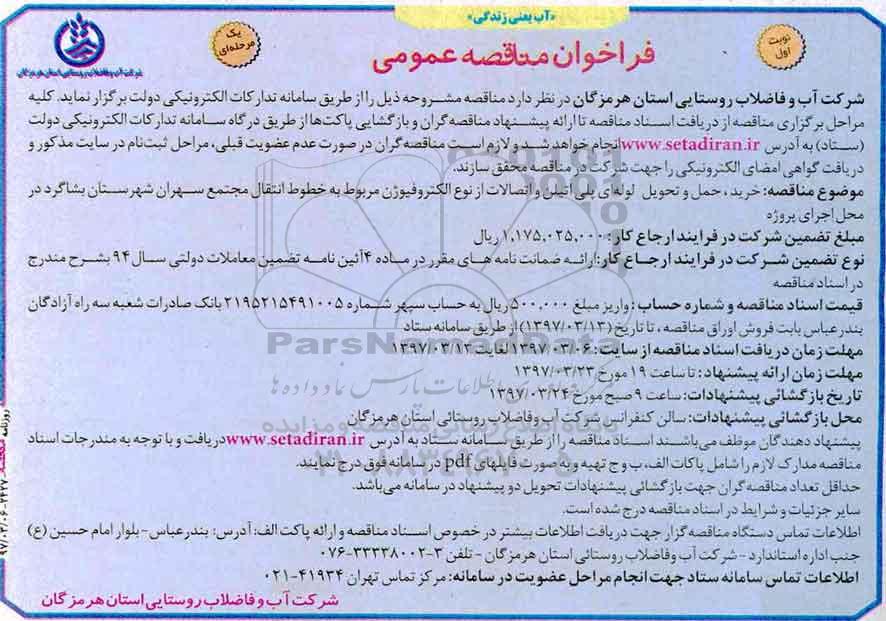 «آب یعنی زندگی»
نوبت اول
یک مرحله‌ای
شرکت آب و فاضلاب روستایی استان هرمزگان
فراخوان مناقصه عمومی
شرکت آب و فاضلاب روستایی استان هرمزگان در نظر دارد مناقصه مشروحه ذیل را از طریق سامانه تدارکات الکترونیکی دولت برگزار نماید. کلیه
مراحل برگزاری مناقصه از دریافت اسناد مناقصه تا ارائه پیشنهاد مناقصه‌گران و بازگشایی پاکت‌ها از طریق درگاه سامانه تدارکات الکترونیکی دولت
(ستاد) به آدرس www.setadiran.ir انجام خواهد شد و لازم است مناقصه‌گران در صورت عدم عضویت قبلی، مراحل ثبت‌نام در سایت مذکور و
دریافت گواهی امضای الکترونیکی را جهت شرکت در مناقصه محقق سازند.
موضوع مناقصه: خرید، حمل و تحویل لوله‌ای پلی اتیلن و اتصالات از نوع الکتروفیوژن مربوط به خطوط انتقال مجتمع سهران شهرستان بشاگرد در
محل اجرای پروژه
مبلغ تضمین شرکت در فرایند ارجاع کار: ۱,۱۷۵,۰۲۵,۰۰۰ ریال
نوع تضمین شرکت در فرایند ارجاع کار: ارائه ضمانت نامه های مقرر در ماده ۴ آئین نامه تضمین معاملات دولتی سال ۹۴ بشرح مندرج
در اسناد مناقصه
قیمت اسناد مناقصه و شماره حساب: واریز مبلغ ۵۰۰,۰۰۰ ریال به حساب سپهر شماره ۲۱۹۵۲۱۵۴۹۱۰۰۵ بانک صادرات شعبه سه راه آزادگان
بندرعباس بابت فروش اوراق مناقصه، تا تاریخ (۱۳۹۷/۰۳/۱۳) از طریق سامانه ستاد
مهلت زمان دریافت اسناد مناقصه از سایت: ۱۳۹۷/۰۳/۰۶ لغایت ۱۳۹۷/۰۳/۱۳
مهلت زمان ارائه پیشنهاد: تا ساعت ۱۹ مورخ ۱۳۹۷/۰۳/۲۳
تاریخ بازگشائی پیشنهادات: ساعت ۹ صبح مورخ ۱۳۹۷/۰۳/۲۴
محل بازگشائی پیشنهادات: سالن کنفرانس شرکت آب وفاضلاب روستائی استان هرمزگان
پیشنهاد دهندگان موظف می‌باشند اسناد مناقصه را از طریق سامانه ستاد به آدرس www.setadiran.ir دریافت و با توجه به مندرجات اسناد
مناقصه مدارک لازم را شامل پاکات الف، ب و ج تهیه و به صورت فایلهای pdf در سامانه فوق درج نمایند.
حداقل تعداد مناقصه گران جهت بازگشائی پیشنهادات تحویل دو پیشنهاد در سامانه می‌باشد.
سایر جزئیات و شرایط در اسناد مناقصه درج شده است.
اطلاعات تماس دستگاه مناقصه گزار جهت دریافت اطلاعات بیشتر در خصوص اسناد مناقصه و ارائه پاکت الف: آدرس: بندرعباس - بلوار امام حسین (ع)
جنب اداره استاندارد - شرکت آب وفاضلاب روستائی استان هرمزگان - تلفن ۳-۳۳۳۳۸۰۰۲-۰۷۶
اطلاعات تماس سامانه ستاد جهت انجام مراحل عضویت در سامانه: مرکز تماس تهران ۴۱۹۳۴-۰۲۱
شرکت آب و فاضلاب روستایی استان هرمزگان
ParsNamadData